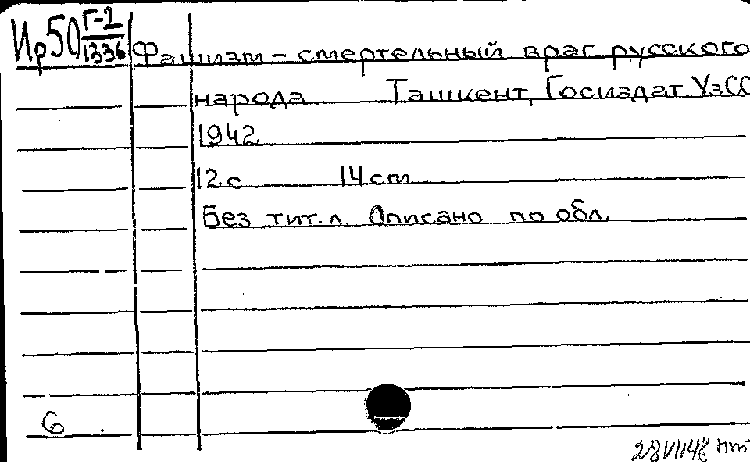 Ир50 Г-2
1336 Фашизм – смертельный враг русского
народа Ташкент, Госиздат УзСС
1942
12 с 14 cm
Без тит. л. Описано по обл.
6